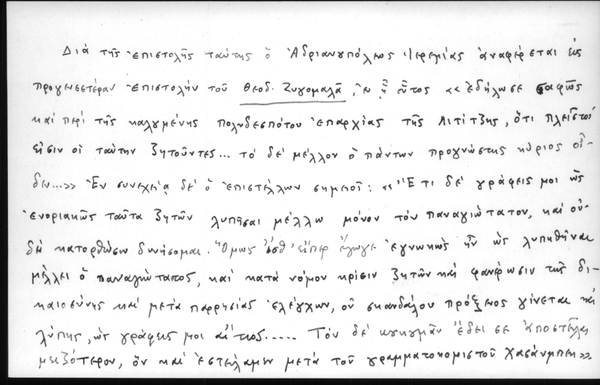 Διὰ τῆς ἐπιστολῆς ταύτης ὁ Ἀδριανουπόλεως Ἱερεμίας ἀναφέρεται εἰς
προγενεστέραν ἐπιστολὴν τοῦ Θεοδ. Ζυγομαλᾶ, ἐν ᾗ οὗτος «ἐδήλωσε σαφῶς
καὶ περὶ τῆς καλημένης πολυδεσπότου ἐπαρχίας τῆς Λιτίτζης, ὅτι πλεῖστοί
εἰσιν οἱ ταύτην ζητοῦντες... τὸ δὲ μέλλον ὁ πάντων προγνώστης κύριος οἶ-
δεν...» Ἐν συνεχείᾳ δὲ ὁ ἐπιστέλλων σημειοῖ: «Ἔτι δὲ γράφεις μοι ὡς
ἐνοριακῶς ταῦτα ζητῶν λυπῆσαι μέλλω μόνον τὸν παναγιώτατον, καὶ οὐ-
δὲν κατορθώσω δυνήσομαι. Ὅμως εἴπερ ἔγωγε ἐγνωκὼς ἦν ὡς λυπηθῆναι
μέλλει ὁ παναγιώτατος, καὶ κατὰ νόμον κρίσιν ζητῶν καὶ φανέρωσιν τῆς δι-
καιοσύνης καὶ μετὰ παρρησίας ἐλέγχων, οὐ σκανδάλου πρόξενος γίνεται καὶ
λύπης, ὡς γράφεις μοι αἴτιος..... Τὸν δὲ ἔδει σε ἀποστεῖλαι
μειζότερον, ὃν καὶ ἐστείλαμεν μετὰ τοῦ γραμματοκομιστοῦ Χασάνμπεη».